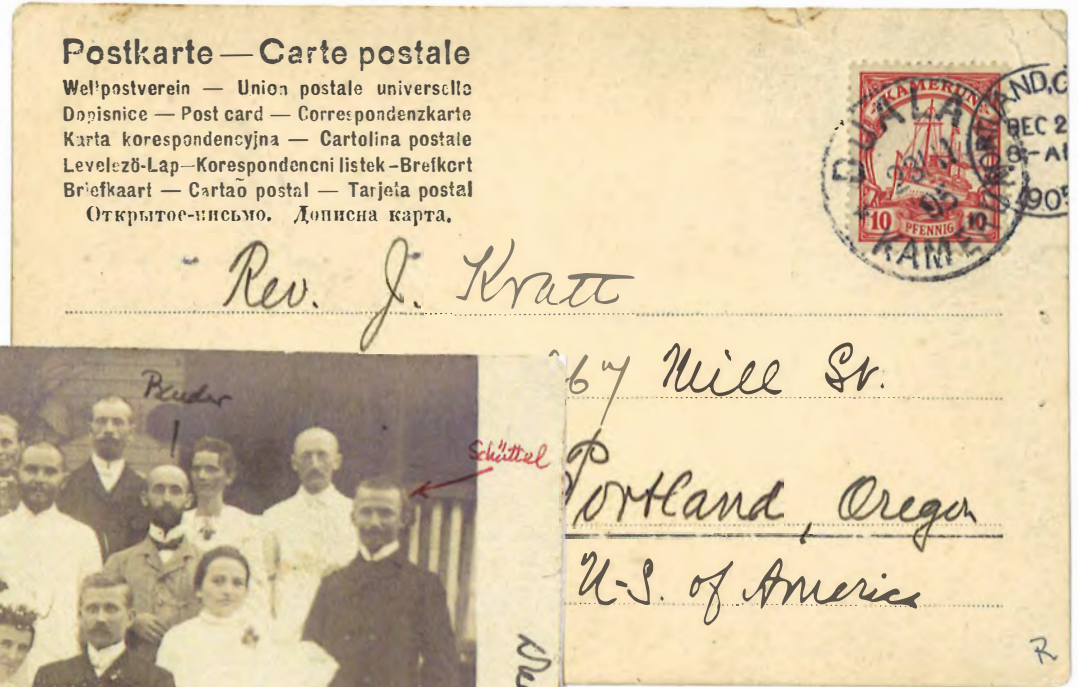 Postkarte — Carte postale
Weltpostverein — Union postale universelle
Dopisnice — Post card — Correspondenzkarte
Karta korespondencyjna — Cartolina postale
Levelező-Lap—Korespondencni listek-Brefkort
Briefkaart — Cartaõ postal — Tarjeta postal
Открытое-письмо. Дописна карта.
KAMERUN
10 PFENNIG 10
DUALA
KAMERUN
DEC 2
1905
Rev. J. Kratt
67 Mill St.
Portland, Oregon
U-S. of America
Bender
Schüttel
R